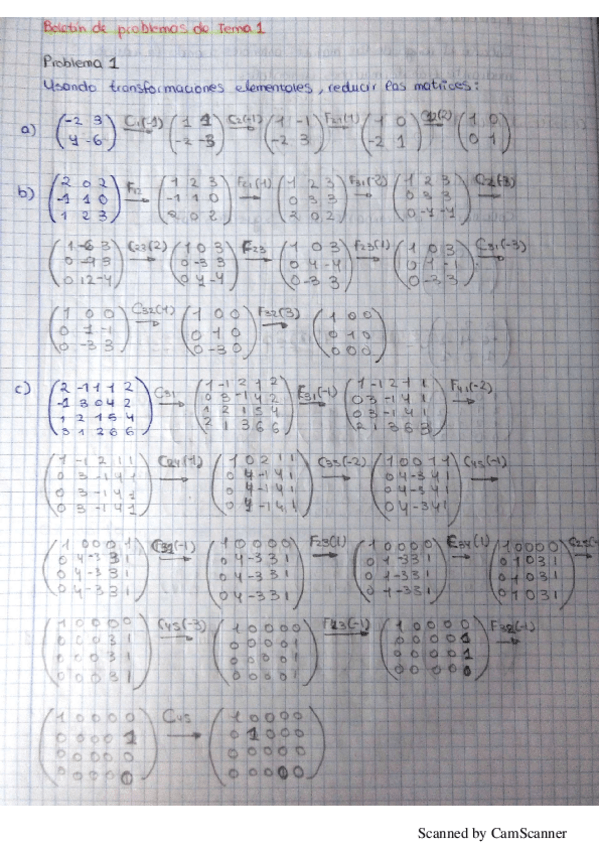 Boletín de problemas de Tema 1
Problema 1
Usando transformaciones elementales, reducir las matrices:
a) (-2 3 / 4 -6) C1(-1) → (1 1 / -2 -3) C2(-1) → (1 -1 / -2 3) F21(1) → (1 0 / -2 1) → (1 0 / 0 1)
b) (2 0 2 / -1 1 0 / 1 2 3) → (1 2 3 / -1 1 0 / 2 0 2) F21(1) → (1 2 3 / 0 3 3 / 2 0 2) F31(-2) → (1 2 3 / 0 3 3 / 0 -4 -4)
C23(2) → (1 0 3 / 0 -3 3 / 0 4 -4) F23 → (1 0 3 / 0 4 -4 / 0 -3 3) F23(1) → (1 0 3 / 0 1 -1 / 0 -3 3) C31(-3) →
(1 0 0 / 0 1 -1 / 0 -3 3) C32(1) → (1 0 0 / 0 1 0 / 0 -3 0) F32(3) → (1 0 0 / 0 1 0 / 0 0 0)
c) C31 → F31(-1) → F41(-2) →
(1 -1 2 1 1 / 0 3 -1 4 1 / 0 3 -1 4 1 / 0 3 -1 4 1) → (1 0 2 1 1 / 0 4 -1 4 1 / 0 4 -1 4 1 / 0 4 -1 4 1) C33(-2) → (1 0 0 1 1 / 0 4 -3 4 1 / 0 4 -3 4 1 / 0 4 -3 4 1) C45(-1) →
(1 0 0 0 1 / 0 4 -3 3 1 / 0 4 -3 3 1 / 0 4 -3 3 1) → (1 0 0 0 0 / 0 4 -3 3 1 / 0 4 -3 3 1 / 0 4 -3 3 1) F23(1) → (1 0 0 0 0 / 0 1 -3 3 1 / 0 1 -3 3 1 / 0 1 -3 3 1) → (1 0 0 0 0 / 0 1 0 3 1 / 0 1 0 3 1 / 0 1 0 3 1)
(1 0 0 0 0 / 0 0 0 3 1 / 0 0 0 3 1 / 0 0 0 3 1) C45(-3) → (1 0 0 0 0 / 0 0 0 0 1 / 0 0 0 0 1 / 0 0 0 0 1) F43(-1) → (1 0 0 0 0 / 0 0 0 0 1 / 0 0 0 0 1 / 0 0 0 0 0) F32(-1) →
(1 0 0 0 0 / 0 0 0 0 1 / 0 0 0 0 0 / 0 0 0 0 0) C45 → (1 0 0 0 0 / 0 1 0 0 0 / 0 0 0 0 0 / 0 0 0 0 0)
Scanned by CamScanner